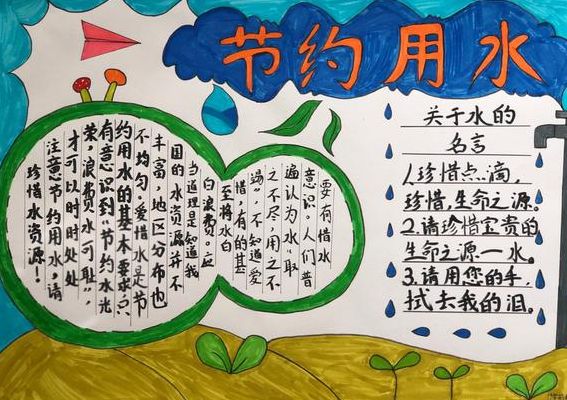 节约用水
要有惜水
意识。人们普
遍认为水“取
之不尽，用之不
竭”，不知道爱
惜，有的甚
至将水白
白浪费。应
当道理是知道我
国的水资源并不
丰富，地区分布也
不均匀，爱惜水是节
约用水的基本要求，只
有意识到“节约水光
荣，浪费水可耻”，
才可以时时处处
注意节约用水，请
珍惜水资源！
关于水的
名言
1.珍惜点滴，
珍惜，生命之源。
2.请珍惜宝贵的
生命之源—水。
3.请用您的手，
拭去我的泪。